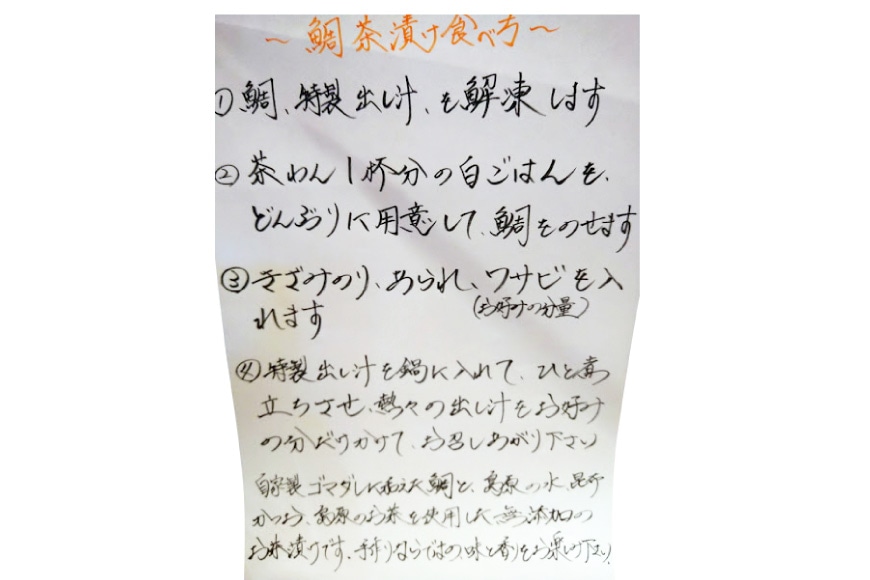 ～鯛茶漬け食べ方～
①鯛、特製出し汁、を解凍します
②茶わん1杯分の白ごはんを、
どんぶりに用意して、鯛をのせます
③きざみのり、あられ、ワサビを入
れます
(お好みの分量)
④特製出し汁を鍋に入れて、ひと煮
立ちさせ、熱々の出し汁をお好み
の分だけかけて、お召しあがり下さい
自家製ゴマダレに和えた鯛と、島原の水、昆布
かつお、島原のお茶を使用した無添加の
お茶漬けです。手作りならではの、味と香りをお楽しみ下さい。